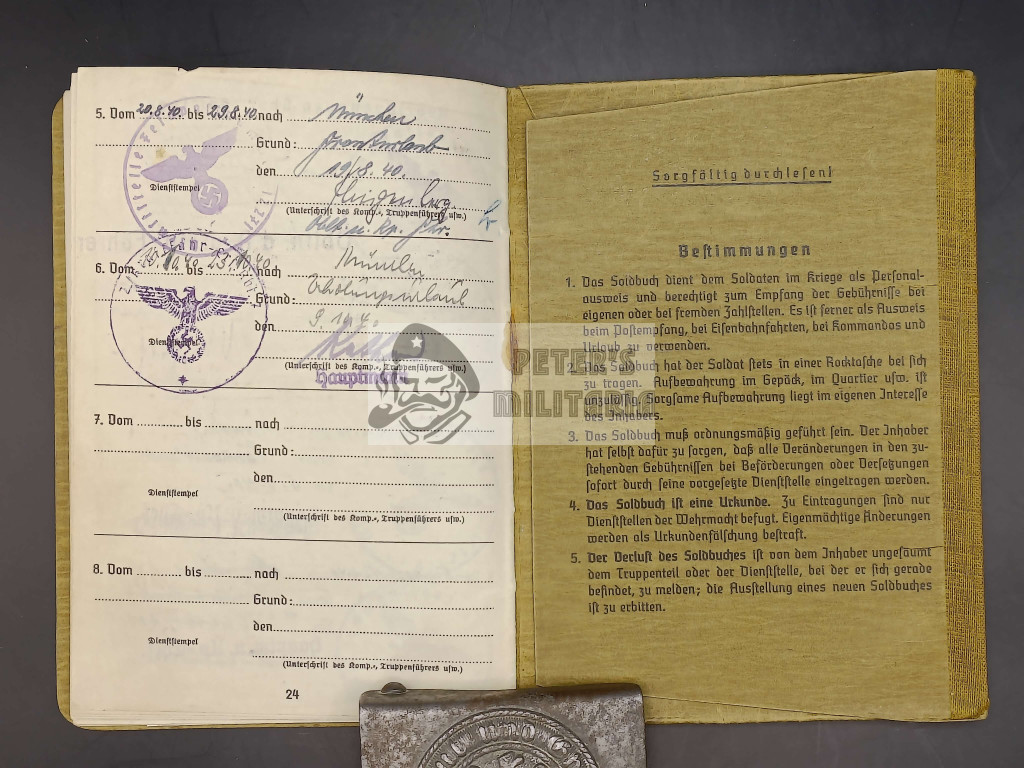 5. Vom 20.8.40. bis 29.8.40 nach München
Grund: Fronturlaub
den 19/8.40.
Dienststempel
(Unterschrift des Komp.-, Truppenführers usw.)
6. Vom bis 25.10.40 nach München
Grund: Erholungsurlaub
den
Dienststempel
(Unterschrift des Komp.-, Truppenführers usw.)
Hauptmann
7. Vom bis nach
Grund:
den
Dienststempel
(Unterschrift des Komp.-, Truppenführers usw.)
8. Vom bis nach
Grund:
den
Dienststempel
(Unterschrift des Komp.-, Truppenführers usw.)
24
Sorgfältig durchlesen!
Bestimmungen
1. Das Soldbuch dient dem Soldaten im Kriege als Personal-
ausweis und berechtigt zum Empfang der Gebührnisse bei
eigenen oder bei fremden Zahlstellen. Es ist ferner als Ausweis
beim Postempfang, bei Eisenbahnfahrten, bei Kommandos und
Urlaub zu verwenden.
2. Das Soldbuch hat der Soldat stets in einer Rocktasche bei sich
zu tragen. Aufbewahrung im Gepäck, im Quartier usw. ist
unzulässig. Sorgsame Aufbewahrung liegt im eigenen Interesse
des Inhabers.
3. Das Soldbuch muß ordnungsmäßig geführt sein. Der Inhaber
hat selbst dafür zu sorgen, daß alle Veränderungen in den zu-
stehenden Gebührnissen bei Beförderungen oder Versetzungen
sofort durch seine vorgesetzte Dienststelle eingetragen werden.
4. Das Soldbuch ist eine Urkunde. Zu Eintragungen sind nur
Dienststellen der Wehrmacht befugt. Eigenmächtige Änderungen
werden als Urkundenfälschung bestraft.
5. Der Verlust des Soldbuches ist von dem Inhaber ungesäumt
dem Truppenteil oder der Dienststelle, bei der er sich gerade
befindet, zu melden; die Ausstellung eines neuen Soldbuches
ist zu erbitten.
PETER'S
MILITARIA